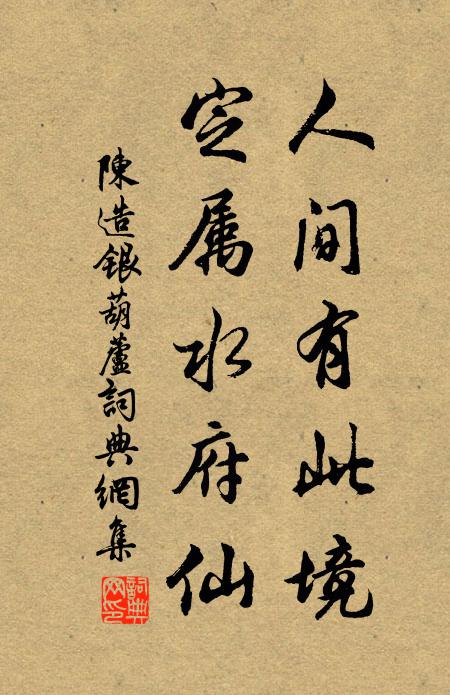 人间有此境
定属水府仙
陳造銀葫蘆詞典網集
詞典网印